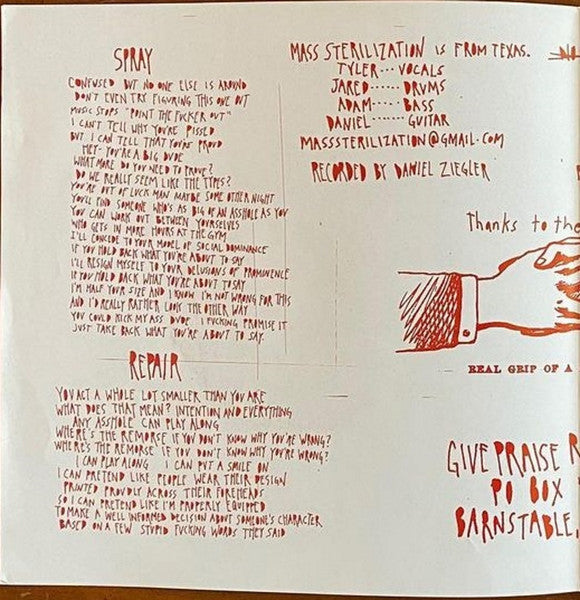 SPRAY
CONFUSED BUT NO ONE ELSE IS AROUND
DON'T EVEN TRY FIGURING THIS ONE OUT
MUSIC STOPS "POINT THE FUCKER OUT"
I CAN'T TELL WHY YOU'RE PISSED
BUT I CAN TELL THAT YOU'RE PROUD
HEY- YOU'RE A BIG DUDE
WHAT MORE DO YOU NEED TO PROVE?
DO WE REALLY SEEM LIKE THE TYPES?
YOU'RE OUT OF LUCK MAN MAYBE SOME OTHER NIGHT
YOU'LL FIND SOMEONE WHO'S AS BIG OF AN ASSHOLE AS YOU
YOU CAN WORK OUT BETWEEN YOURSELVES
WHO GETS IN MORE HOURS AT THE GYM
I'LL CONCEDE TO YOUR MODEL OF SOCIAL DOMINANCE
IF YOU HOLD BACK WHAT YOU'RE ABOUT TO SAY
I'LL RESIGN MYSELF TO YOUR DELUSIONS OF PROMINENCE
IF YOU HOLD BACK WHAT YOU'RE ABOUT TO SAY
I'M HALF YOUR SIZE AND I KNOW I'M NOT WRONG FOR THIS
AND I'D REALLY RATHER LOOK THE OTHER WAY
YOU COULD KICK MY ASS DUDE I FUCKING PROMISE IT
JUST TAKE BACK WHAT YOU'RE ABOUT TO SAY.
REPAIR
YOU ACT A WHOLE LOT SMALLER THAN YOU ARE
WHAT DOES THAT MEAN? INTENTION AND EVERYTHING
ANY ASSHOLE CAN PLAY ALONG
WHERE'S THE REMORSE IF YOU DON'T KNOW WHY YOU'RE WRONG?
WHERE'S THE REMORSE IF YOU DON'T KNOW WHY YOU'RE WRONG?
I CAN PLAY ALONG I CAN PUT A SMILE ON
I CAN PRETEND LIKE PEOPLE WEAR THEIR DESIGN
PRINTED PROUDLY ACROSS THEIR FOREHEADS
SO I CAN PRETEND LIKE I'M PROPERLY EQUIPPED
TO MAKE A WELL INFORMED DECISION ABOUT SOMEONE'S CHARACTER
BASED ON A FEW STUPID FUCKING WORDS THEY SAID
MASS STERILIZATION IS FROM TEXAS.
TYLER... VOCALS
JARED..... DRUMS
ADAM..... BASS
DANIEL...... GUITAR
MASSSTERILIZATION@GMAIL.COM
RECORDED BY DANIEL ZIEGLER
Thanks to the
REAL GRIP OF A
GIVE PRAISE
PO BOX
BARNSTABLE,